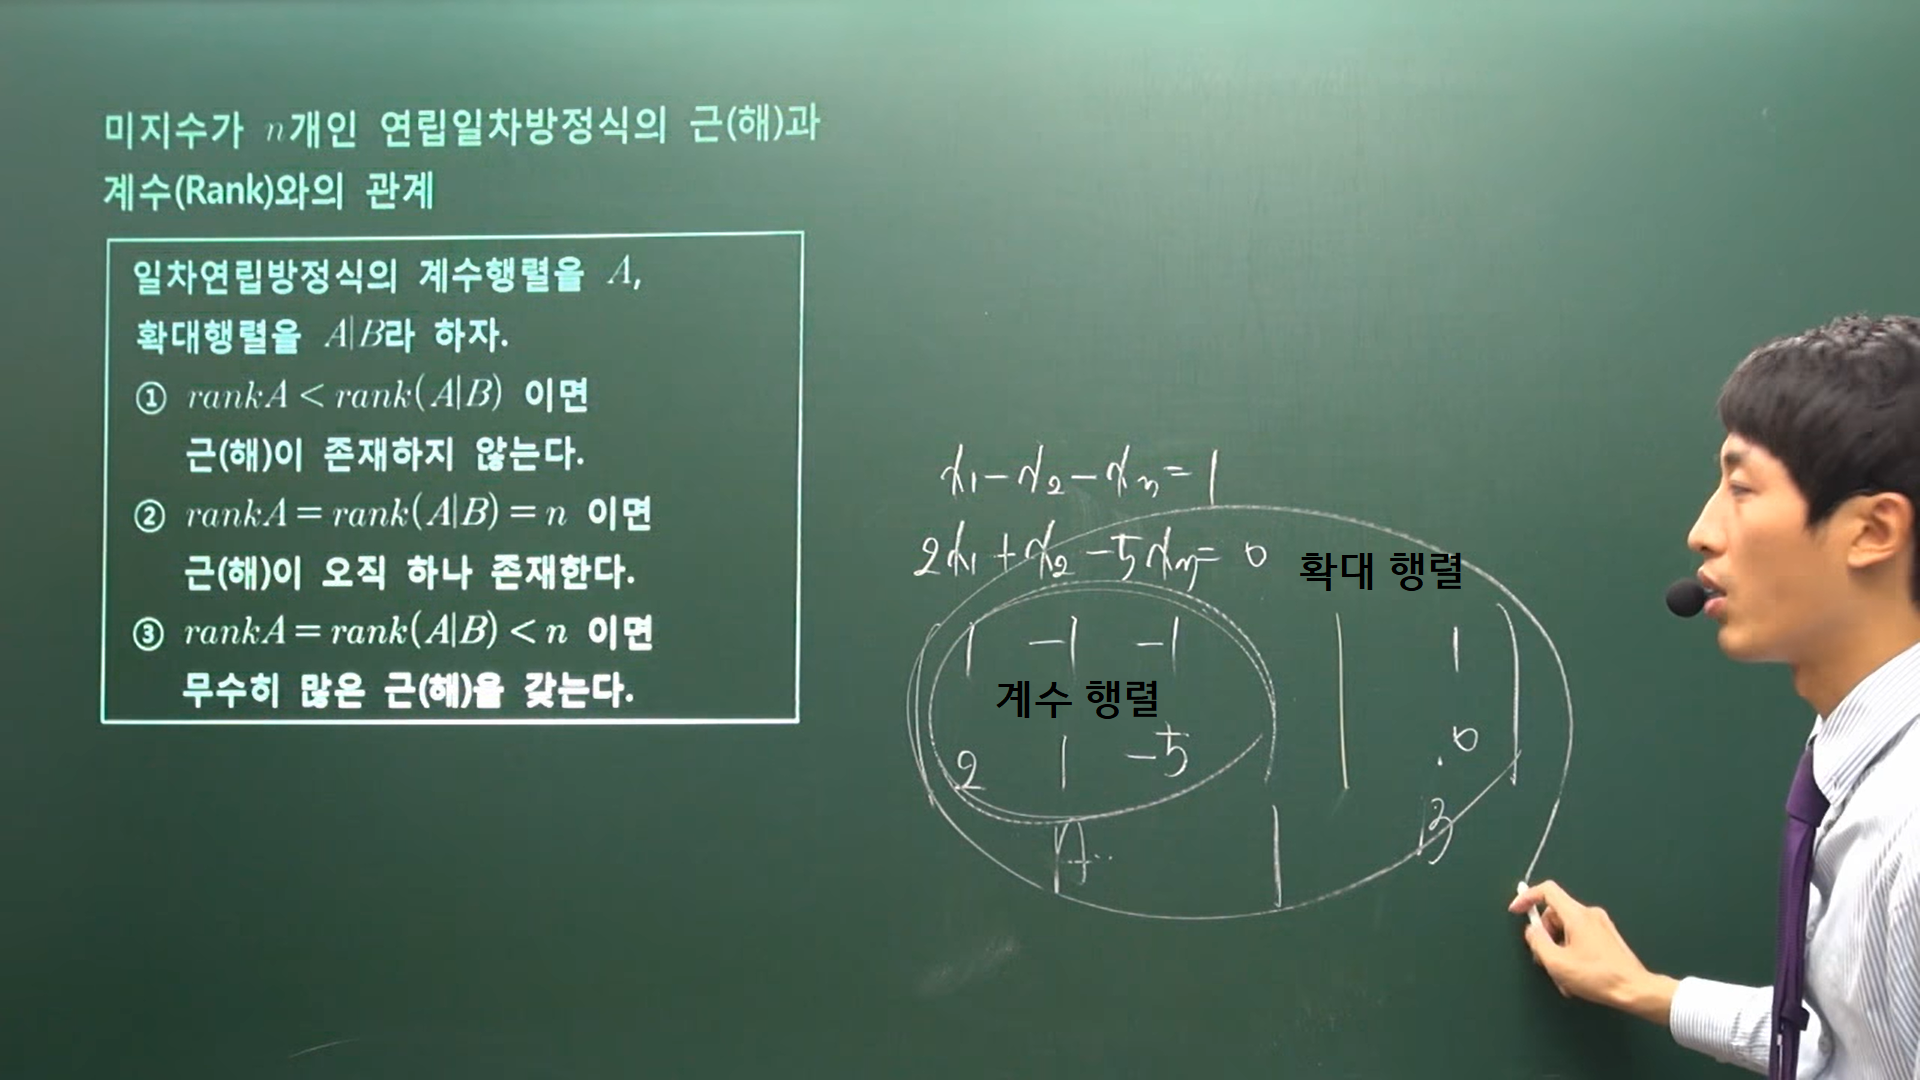 미지수가 n개인 연립일차방정식의 근(해)과
계수(Rank)와의 관계
일차연립방정식의 계수행렬을 A,
확대행렬을 A|B라 하자.
① rankA < rank(A|B) 이면
근(해)이 존재하지 않는다.
② rankA = rank(A|B) = n 이면
근(해)이 오직 하나 존재한다.
③ rankA = rank(A|B) < n 이면
무수히 많은 근(해)을 갖는다.
x₁ - x₂ - xₙ = 1
2x₁ + x₂ - 5xₙ = 0
확대 행렬
1 -1 -1 | 1
계수 행렬
2 1 -5 | 0
A | B